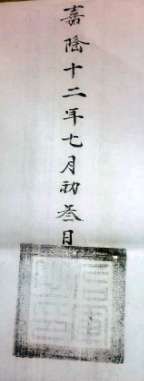 嘉隆十二年七月初叁日